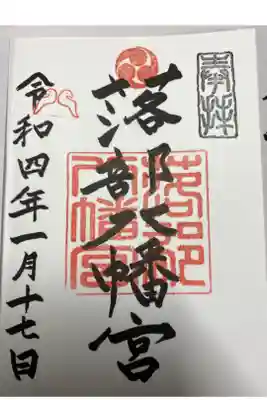 奉拝
落部八幡宮
落部
八幡宮
令和四年一月十七日